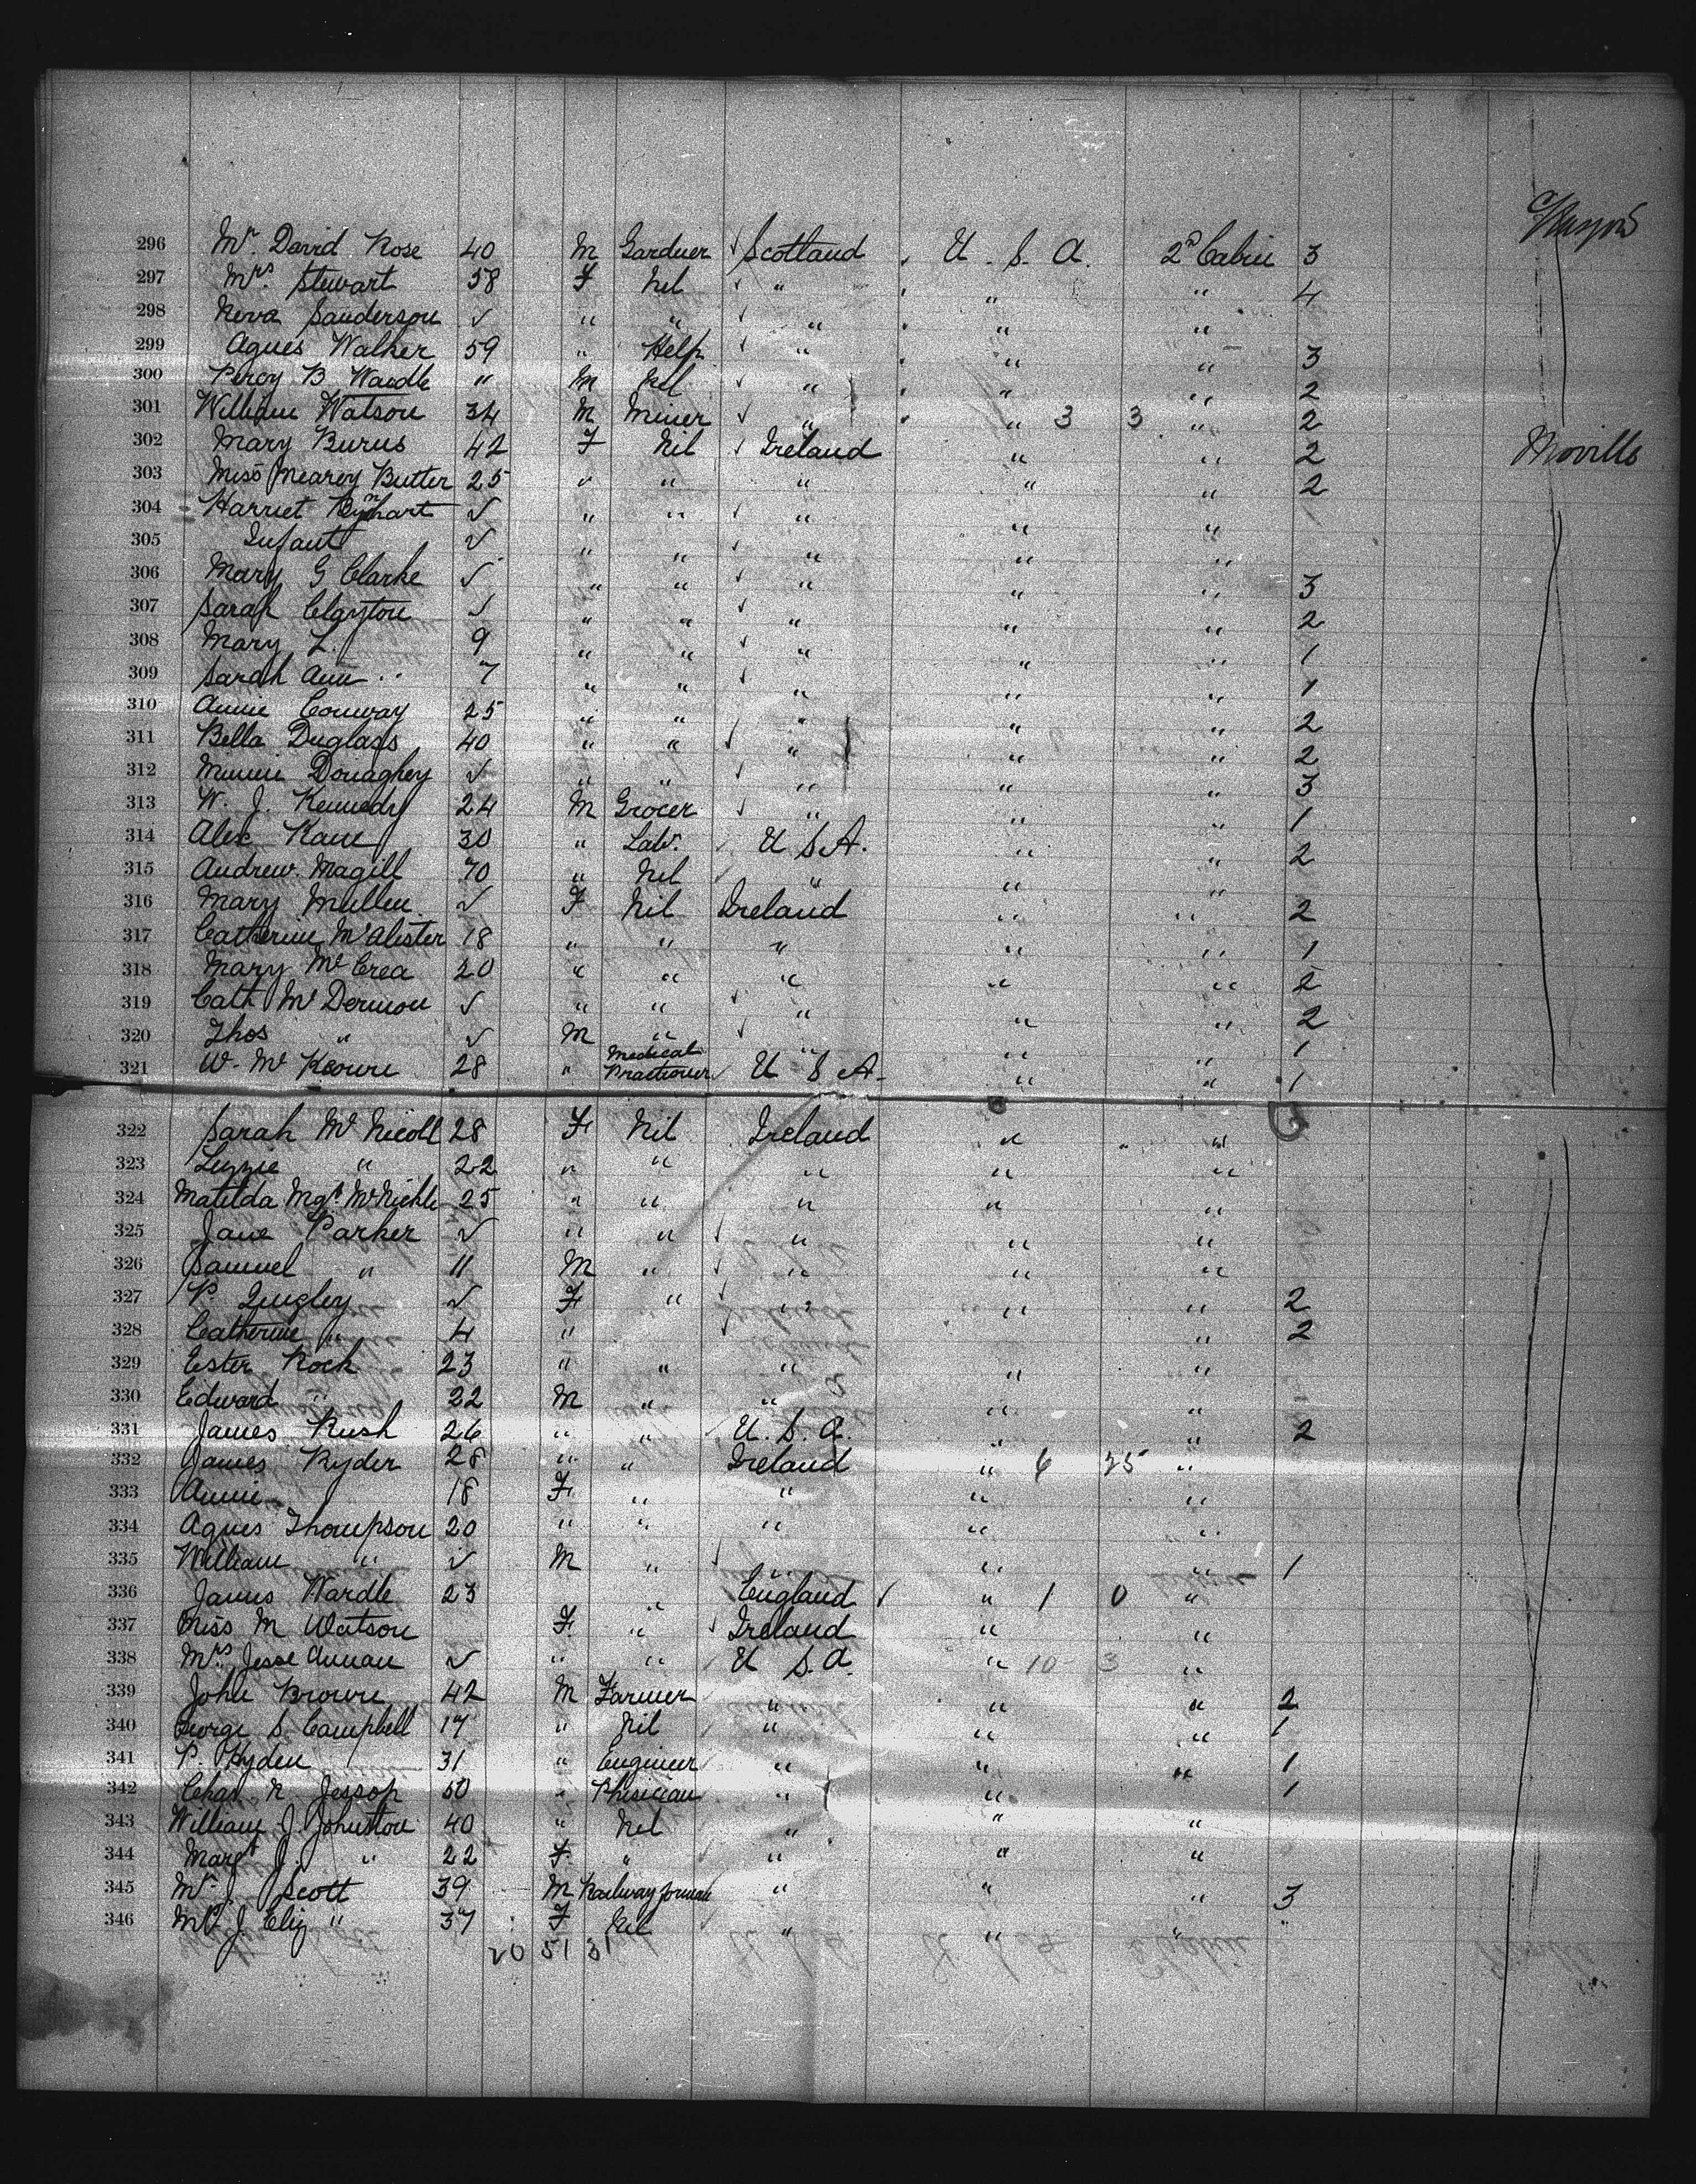 Glasgow
296 Mr. David Rose 40 M Gardner √ Scotland U. S. A. 2d Cabin 3
297 Mrs. Stewart 58 F Nil √ " " " 4
298 Neva Sanderson √ " " √ " " "
299 Agnes Walker 59 " Help √ " " " 3
300 Percy B Wardle " M Nil √ " " " 2
301 William Watson 34 M Miner √ " " 3 3 " 2
302 Mary Burns 42 F Nil √ Ireland " " 2 Moville
303 Miss Mearey Butter 25 " " " " " 2
304 Harriet √ " " √ " " "
305 Infant √ " " √ " " "
306 Mary G Clarke √ " " √ " " " 3
307 Sarah Clayton √ " " √ " " " 2
308 Mary L. 9 " " √ " " " 1
309 Sarah Ann " 7 " " √ " " " 1
310 Annie Conway 25 " " " " " 2
311 Bella Duglass 40 " " √ " " " 2
312 Minnie Donaghey √ " " √ " " " 3
313 W. J. Kennedy 24 M Grocer √ " " " 1
314 Alex Kane 30 " Labr. U S A. " " 2
315 Andrew Magill 70 " Nil " " "
316 Mary Mullen √ F Nil Ireland " " 2
317 Catherine McAlister 18 " " " " " 1
318 Mary McCrea 20 " " " " " 2
319 Cath McDermon √ " " √ " " " 2
320 Thos " √ M " √ " " " 1
321 W. McKeown 28 " Medical Practioner U S A. " " 1
322 Sarah McNicoll 28 F Nil Ireland " "
323 Lizzie " 22 " " " " "
324 Matilda Mgt. McNickle 25 " " " " "
325 Jane Parker √ " " √ " " "
326 Samuel " 11 M " √ " " "
327 P. Quigley √ F " √ " " " 2
328 Catherine " 4 " √ " 2
329 Ester Rock 23 " " " " "
330 Edward " 22 M " " " "
331 James Rush 26 " " U. S. A. " " 2
332 James Ryder 28 " " Ireland " 6 25 "
333 Annie 18 F " " " "
334 Agnes Thompson 20 " " " " "
335 William " √ M " √ " " " 1
336 James Wardle 23 " England √ " 1 0 "
337 Miss M Watson F " √ Ireland " "
338 Mrs. Jesse Annan √ " " U S. A. " 10 3 "
339 John Brown 42 M Farmer " " " 2
340 George S Campbell 17 " Nil " " " 1
341 P. Hyden 31 " Engineer " " " 1
342 Chas R Jessop 50 " Phisician " " " 1
343 William J. Johnston 40 " Nil " " "
344 Margt J. " 22 F " " " "
345 Mr J Scott 39 M Railway forman " " " 3
346 Mrs J. Eliz " 37 F Nil " " " "
20 51 31